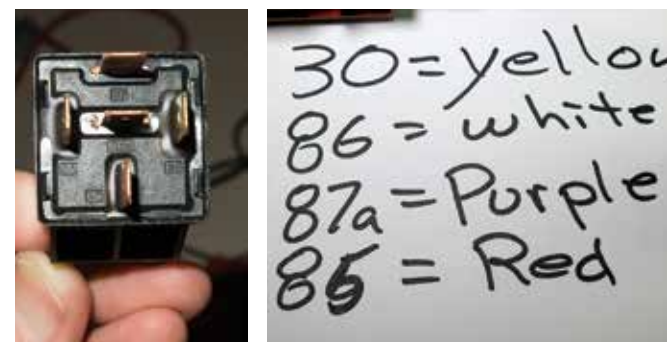 30=yellow
86 = white
87a = Purple
85 = Red